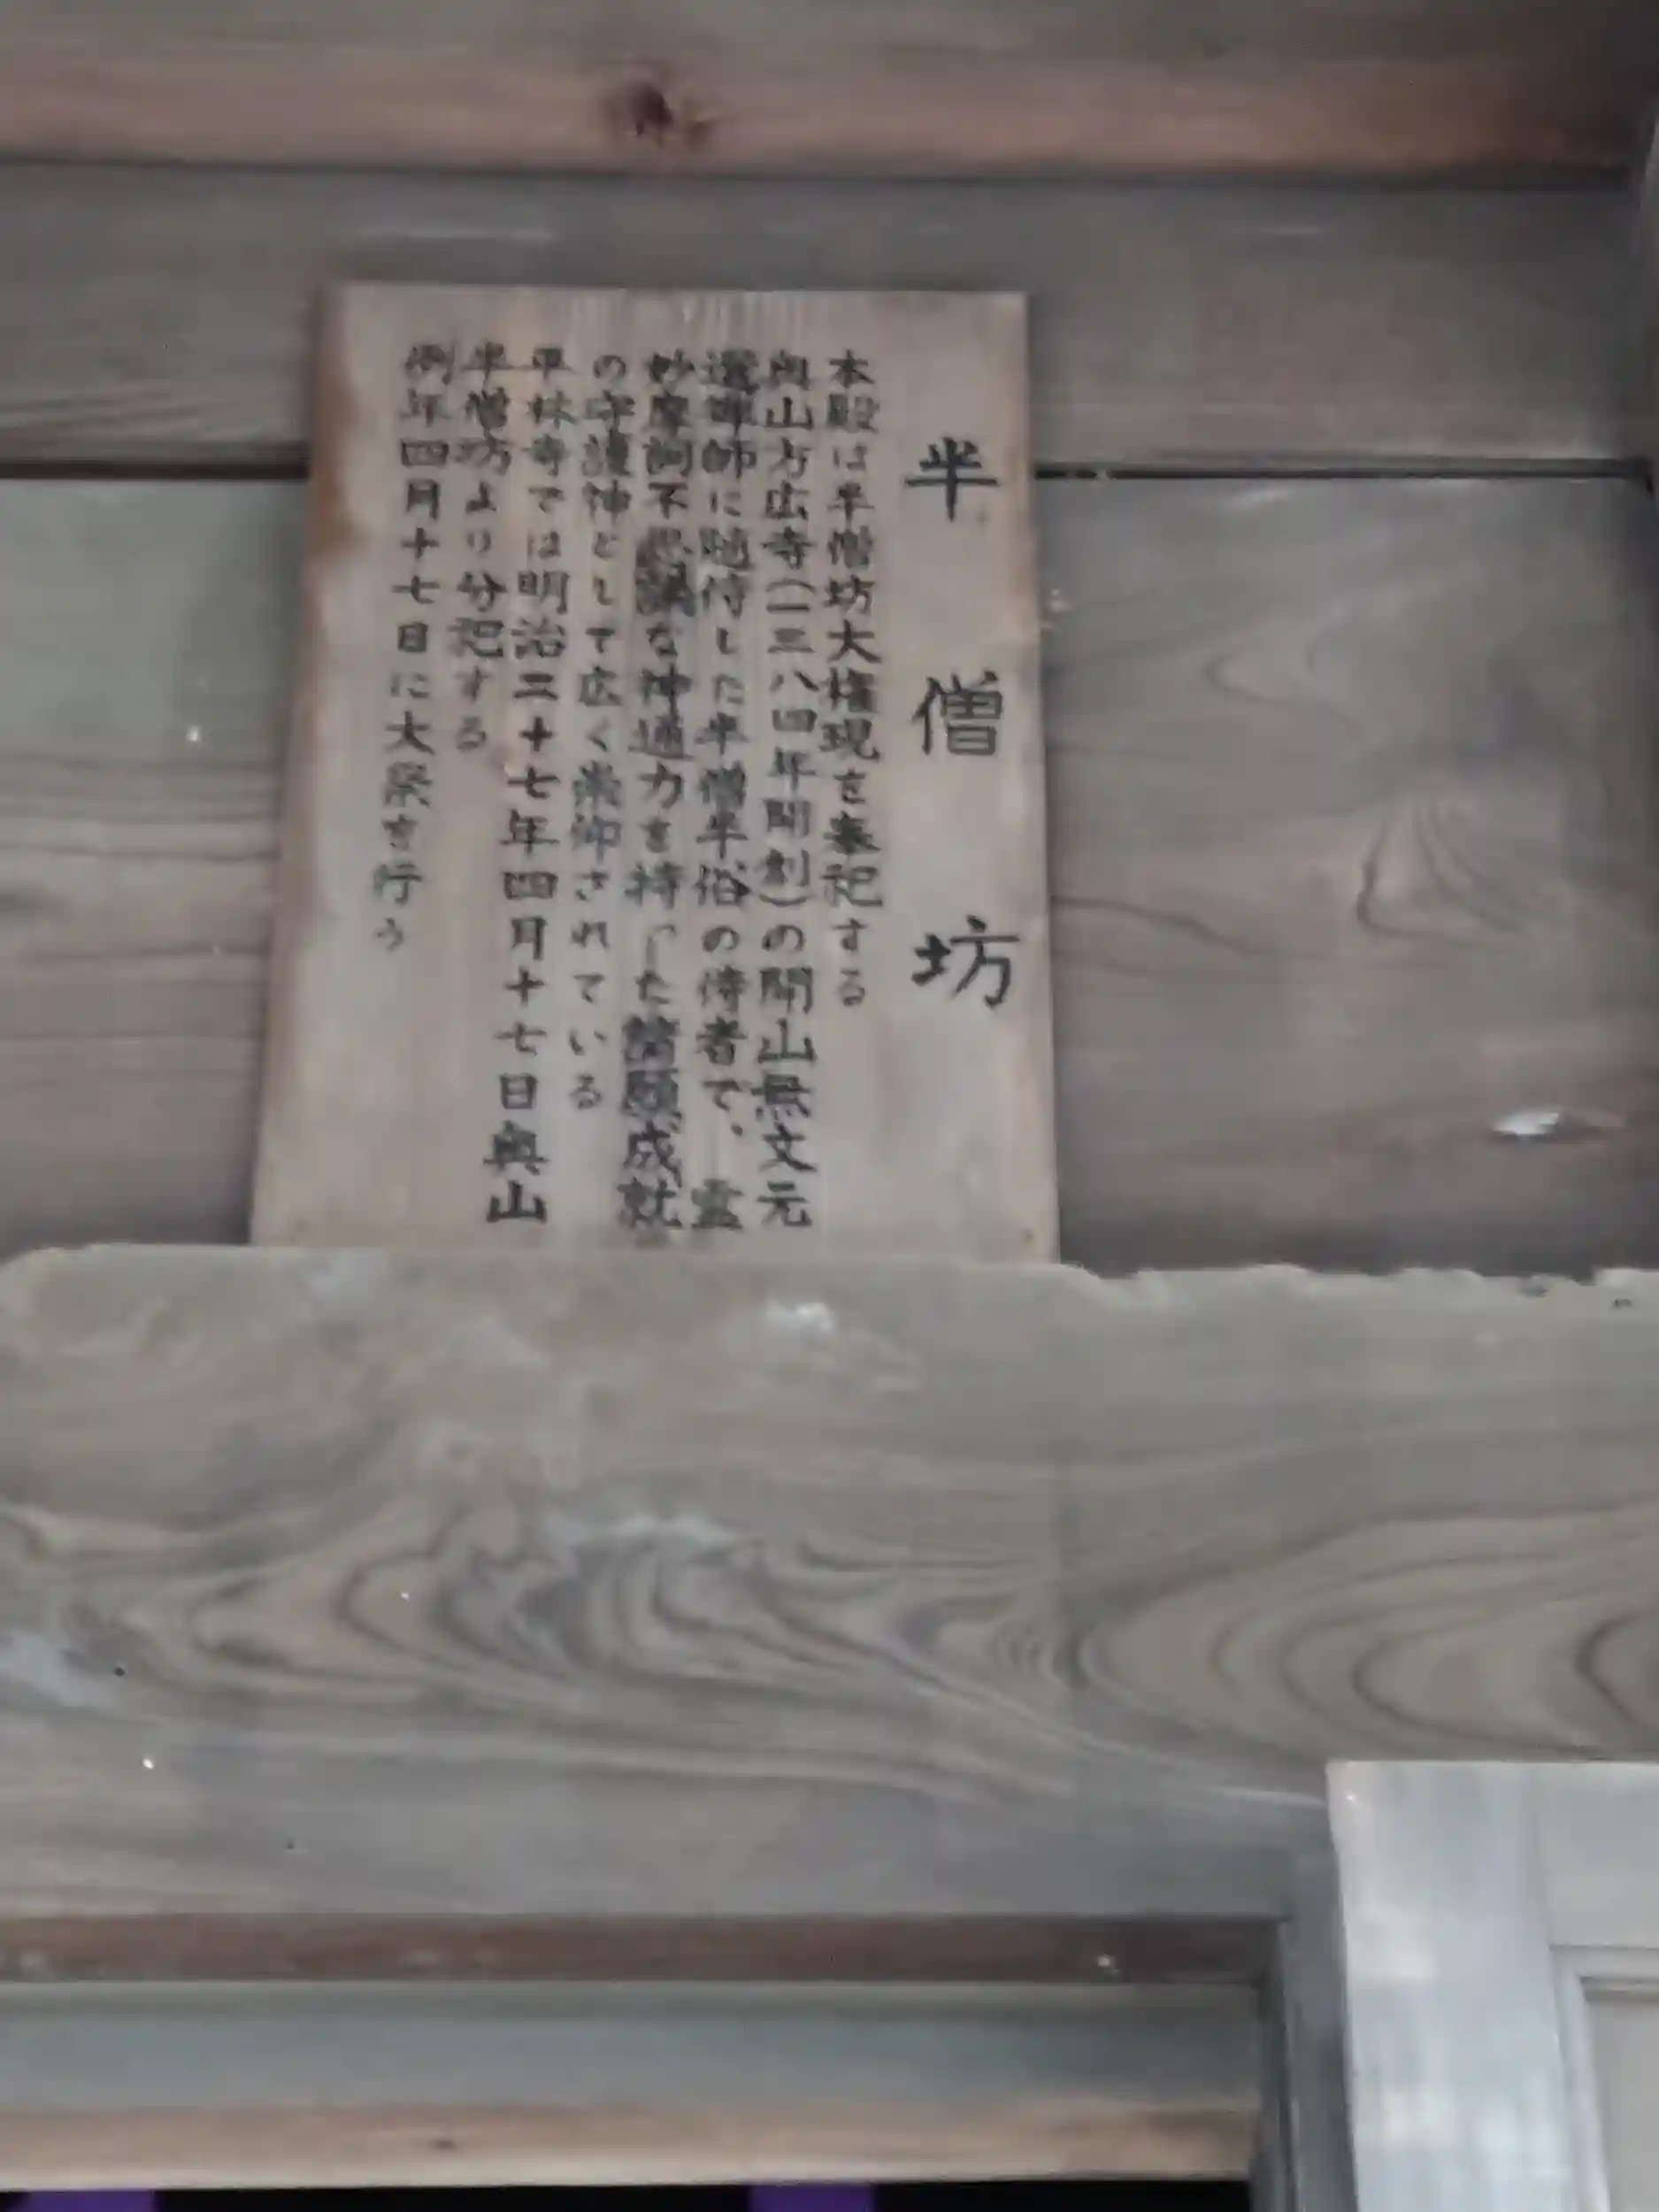 半僧坊
本殿は半僧坊大権現を奉祀する
奥山方広寺(一三八四年開創)の開山無文元
選禅師に随侍した半僧半俗の侍者で、霊
妙摩訶不思議な神通力を持った諸願成就
の守護神として広く崇仰されている
平林寺では明治二十七年四月十七日奥山
半僧坊より分祀する
例年四月十七日に大祭を行う